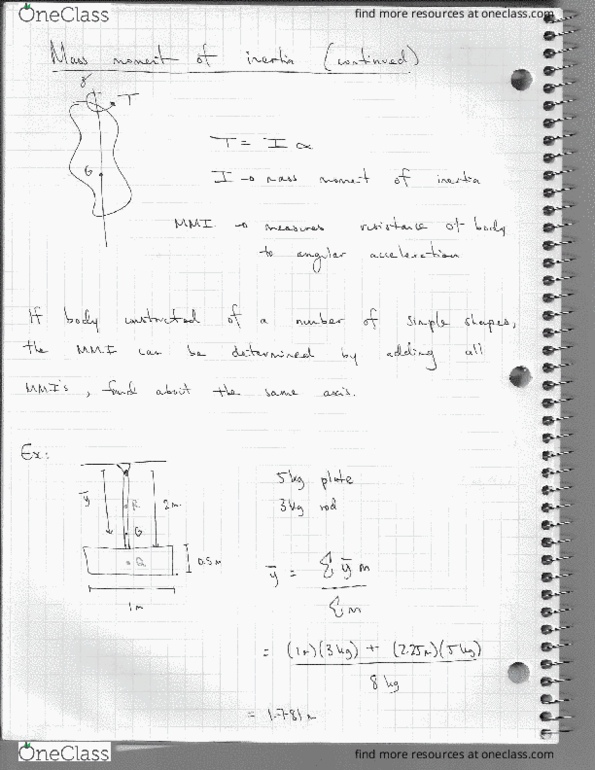 OneClass
find more resources at oneclass.com
Mass moment of inertia (continued)
T
G
T = I α
I → mass moment of inertia
MMI → measures resistance of body
to angular acceleration
If body constructed of a number of simple shapes,
the MMI can be determined by adding all
MMI's, found about the same axis.
Ex:
5 kg plate
3 kg rod
ȳ
R
2m
G
Q
0.5m
1m
ȳ = Σ ȳ m
Σ m
= (1m)(3kg) + (2.25m)(5kg)
8 kg
= 1.781 m
OneClass
find more resources at oneclass.com